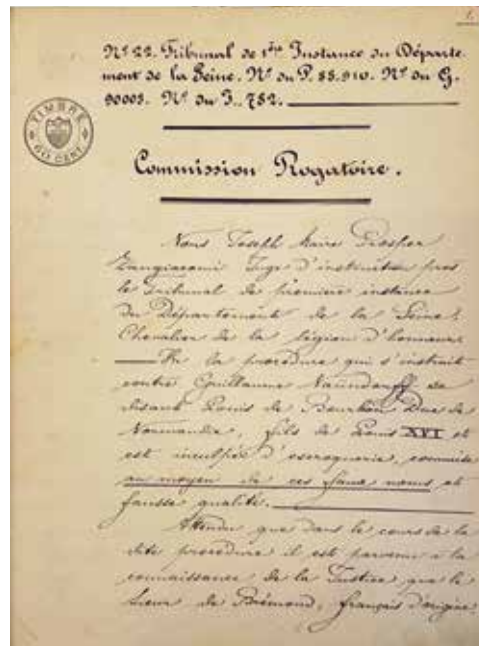 1.
Nº 22. Tribunal de 1ère Instance du Départe-
ment de la Seine. Nº du P. 85,910. Nº du G.
90003. Nº du J. 782.
TIMBRE
60 CENT.
Commission Rogatoire.
Nous Joseph Marie Prosper
Zangiacomi Juge d'instruction près
le Tribunal de première instance
du Département de la Seine,
Chevalier de la légion d'honneur
Vu la procédure qui s'instruit
contre Guillaume Naündorff se
disant Louis de Bourbon Duc de
Normandie, fils de Louis XVI et
est inculpé d'escroquerie, commise
au moyen de ces faux noms et
fausse qualité.
Attendu que dans le cours de la
dite procédure il est parvenu à la
connaissance de la Justice que le
Sieur de Brémond, français d'origine,